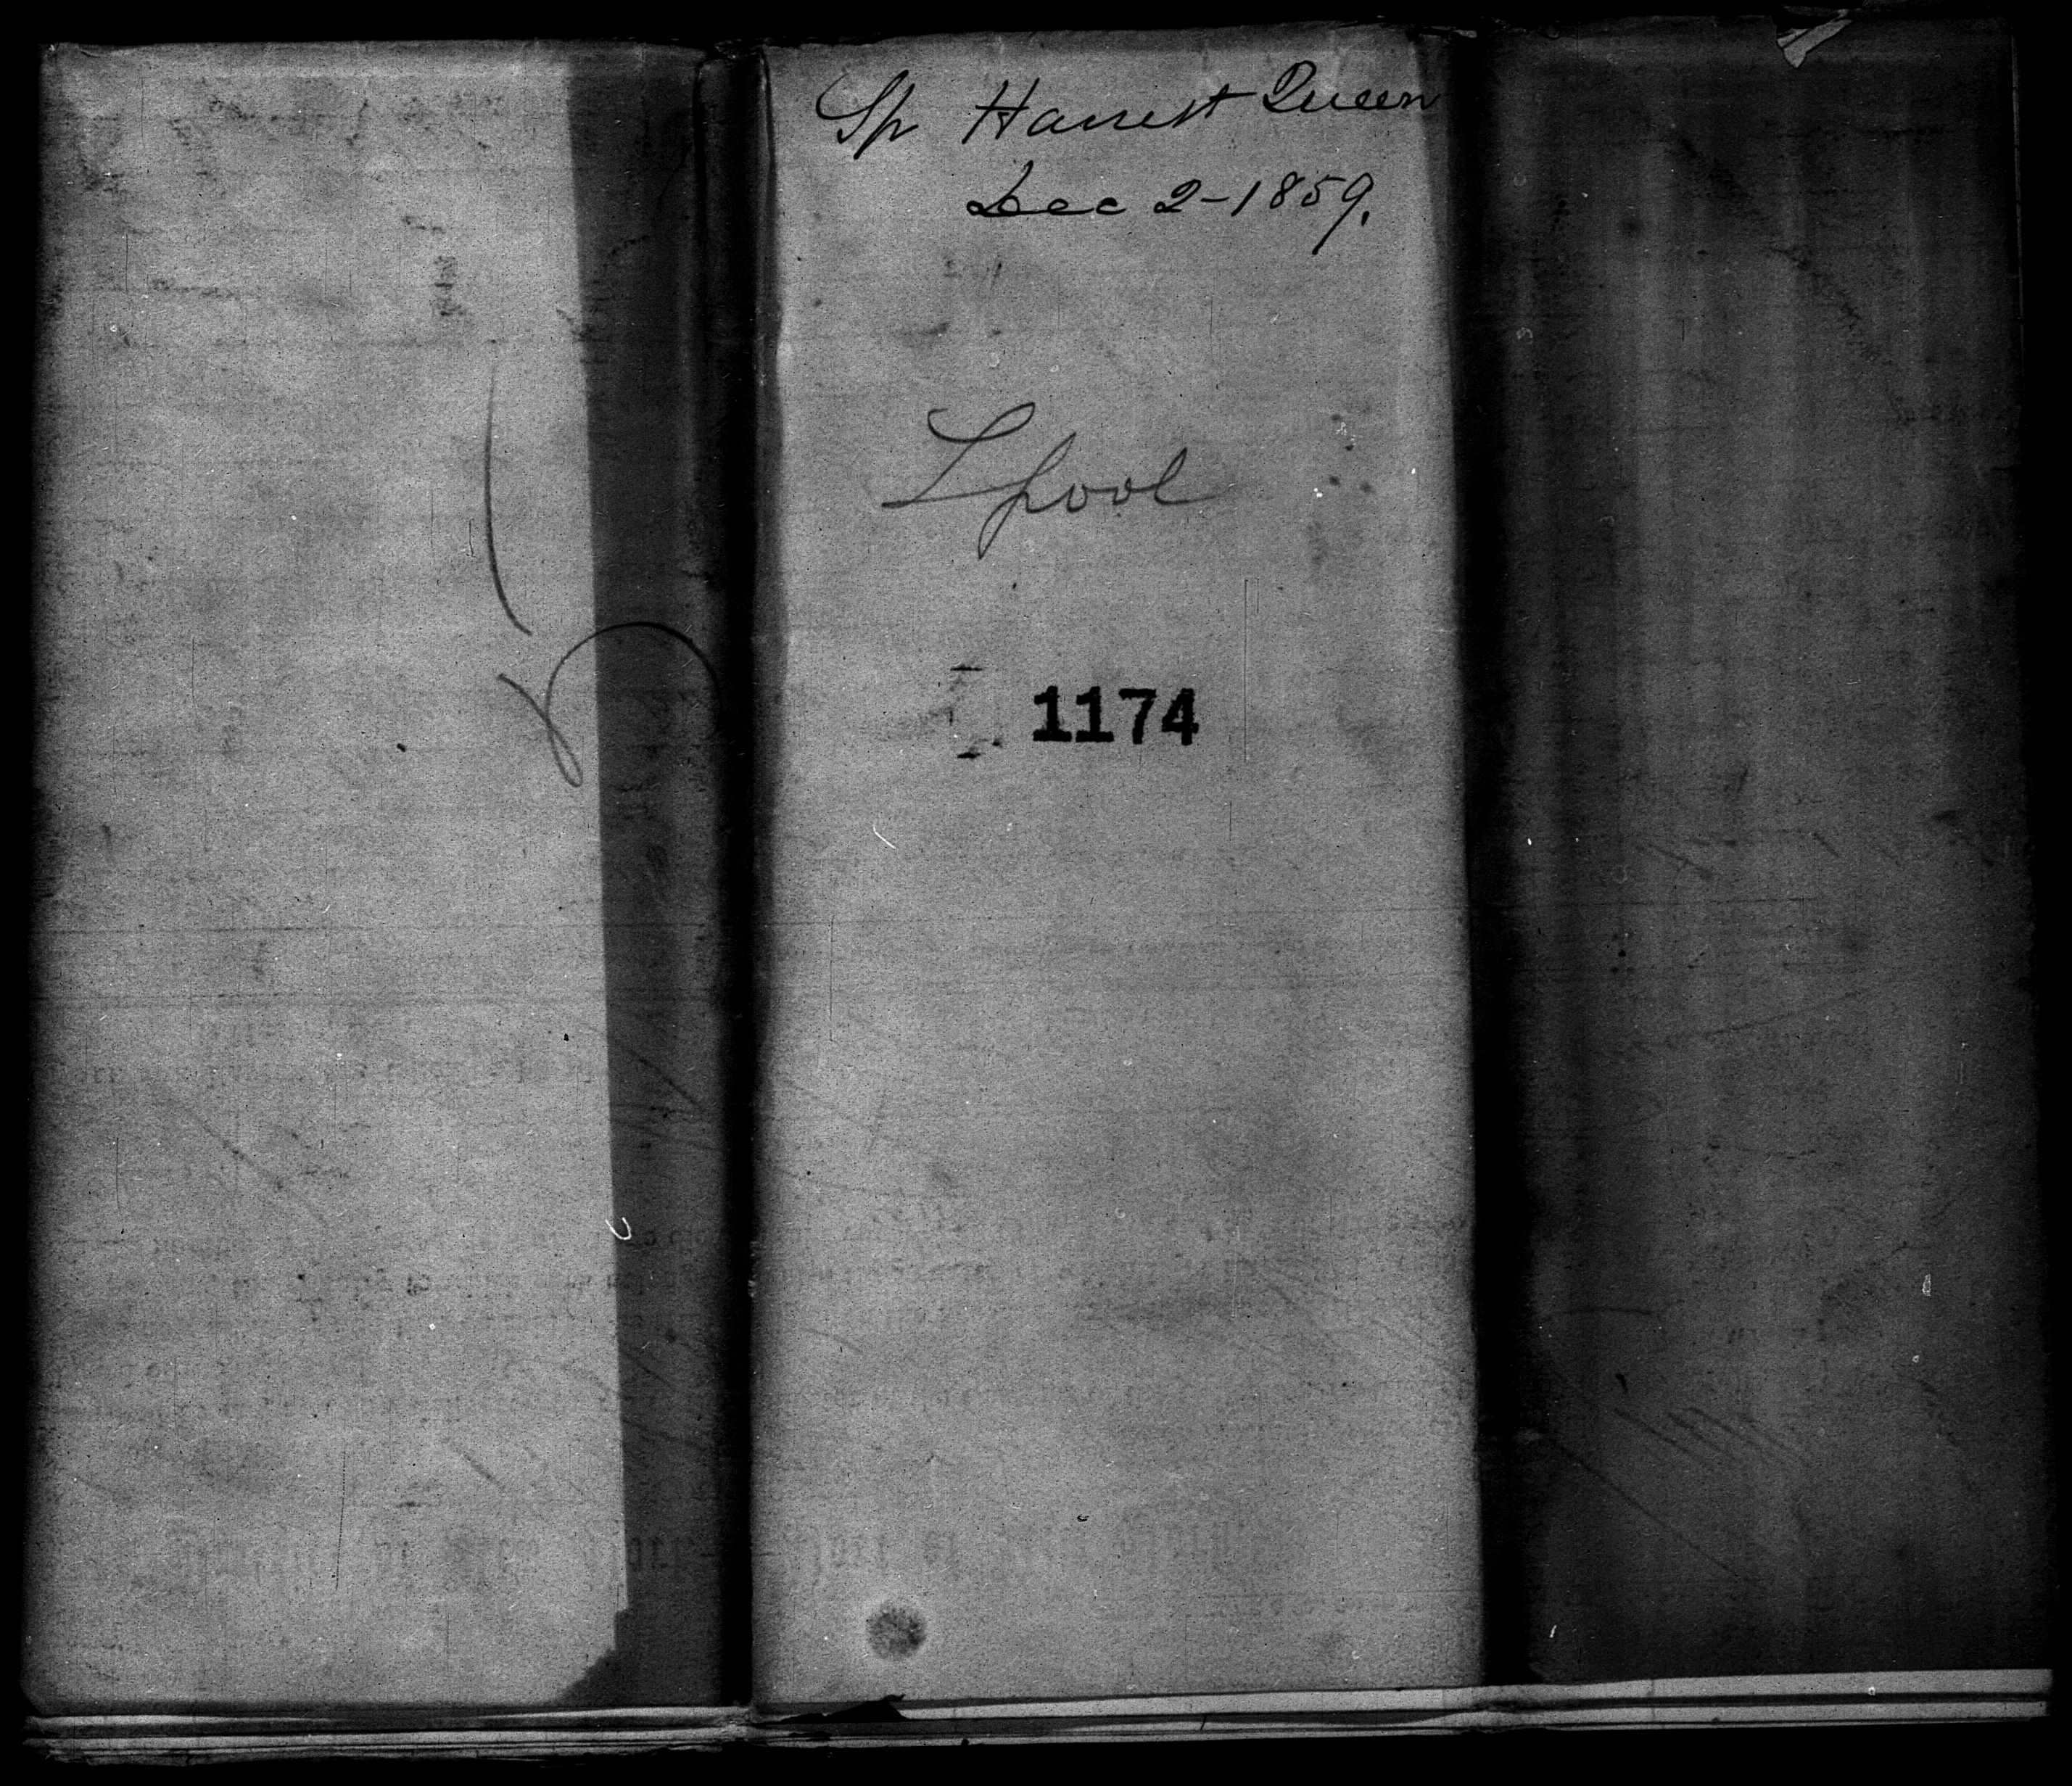 Sp Harriett Queen
Dec 2-1859.
Lpool
1174